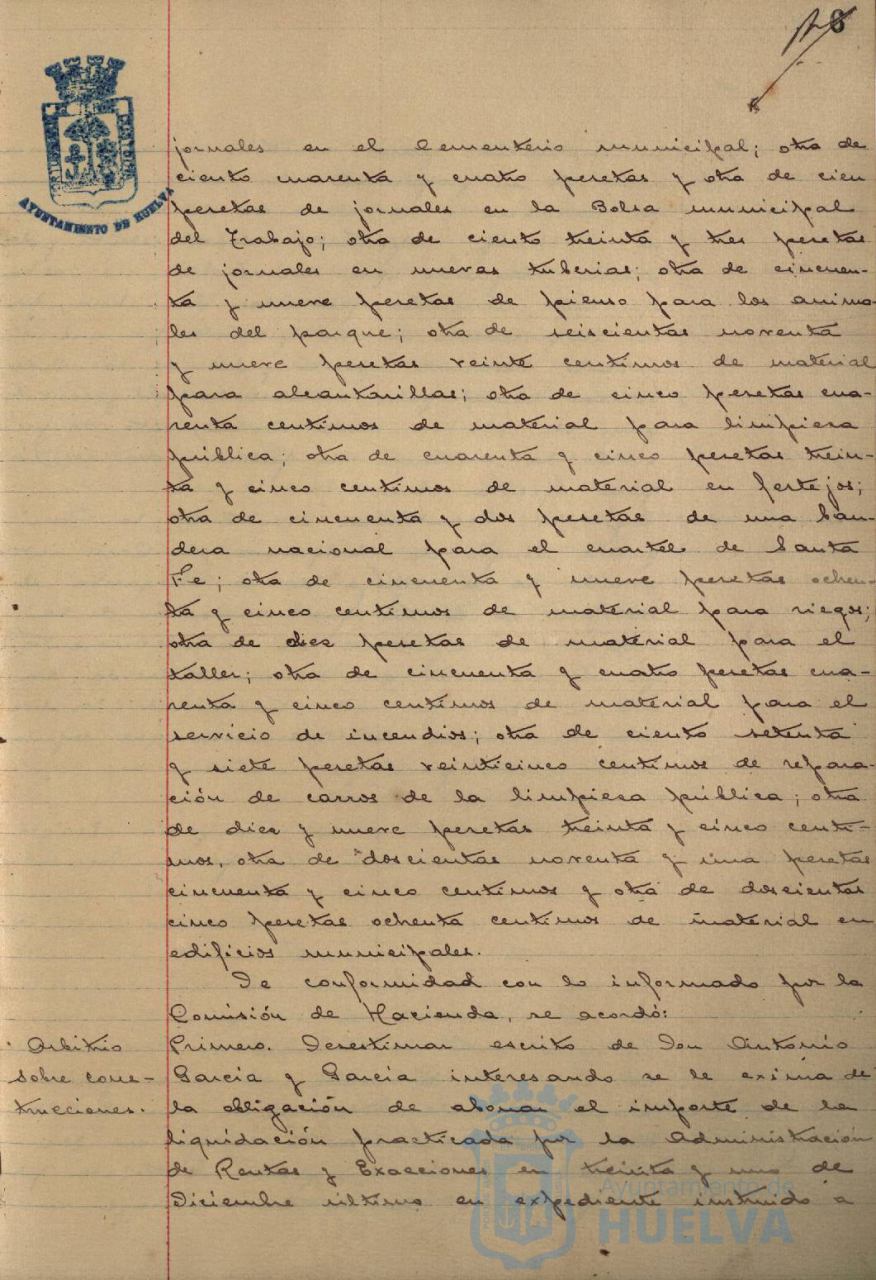 8
AYUNTAMIENTO DE HUELVA
jornales en el Cementerio municipal; otra de
ciento cuarenta y cuatro pesetas y otra de cien
pesetas de jornales en la Bolsa municipal
del Trabajo; otra de ciento treinta y tres pesetas
de jornales en nuevas tuberias; otra de cincuen-
ta y nueve pesetas de pienso para los anima-
les del parque; otra de seiscientas noventa
y nueve pesetas veinte centimos de material
para alcantarillas; otra de cinco pesetas cua-
renta centimos de material para limpiesa
pública; otra de cuarenta y cinco pesetas trein-
ta y cinco centimos de material en festejos;
otra de cincuenta y dos pesetas de una ban-
dera nacional para el cuartel de Santa
Fe; otra de cincuenta y nueve pesetas ochen-
ta y cinco centimos de material para riegos;
otra de diez pesetas de material para el
taller; otra de cincuenta y cuatro pesetas cua-
renta y cinco centimos de material para el
servicio de incendios; otra de ciento setenta
y siete pesetas veinticinco centimos de repara-
ción de carros de la limpiesa pública; otra
de diez y nueve pesetas treinta y cinco centi-
mos, otra de doscientas noventa y una pesetas
cincuenta y cinco centimos y otra de doscientas
cinco pesetas ochenta centimos de material en
edificios municipales.
De conformidad con lo informado por la
Comisión de Hacienda, se acordó:
Arbitrio
sobre cons-
trucciones.
Primero. Desestimar escrito de Don Antonio
Garcia y Garcia interesando se le exima de
la obligación de abonar el importe de la
liquidación practicada por la Administración
de Rentas y Exacciones en treinta y uno de
Diciembre ultimo en expediente instruido a
Ayuntamiento de
HUELVA